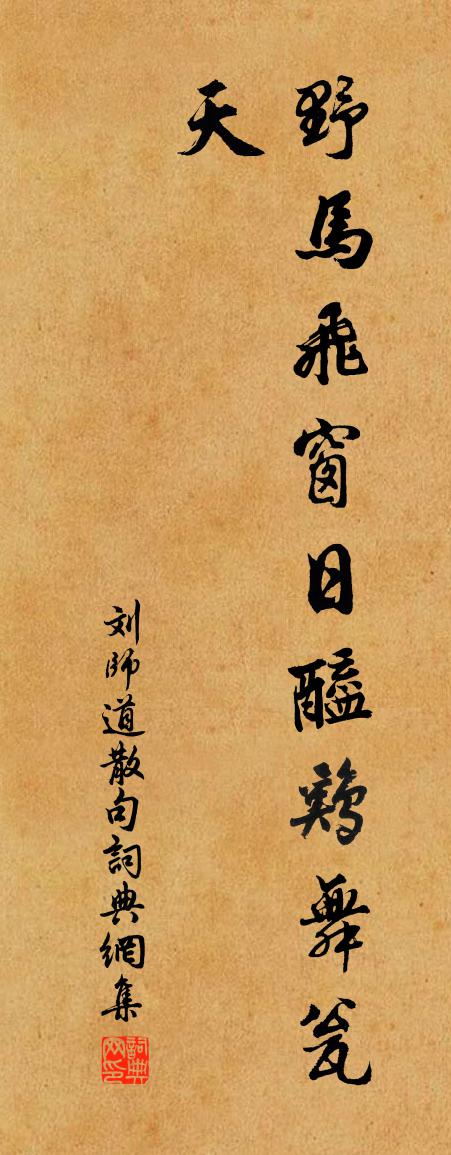 野馬飛窗日醯鷄舞瓮
天
刘師道散句詞典網集
詞典网印